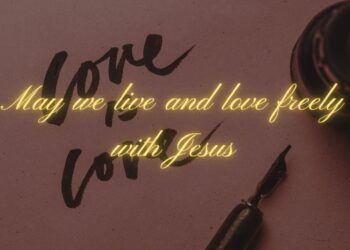 Love
May we live and love freely
is
with Jesus
Love